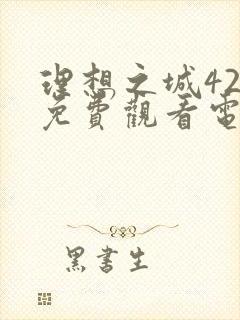 理想之城42
免費觀看電
黑書生